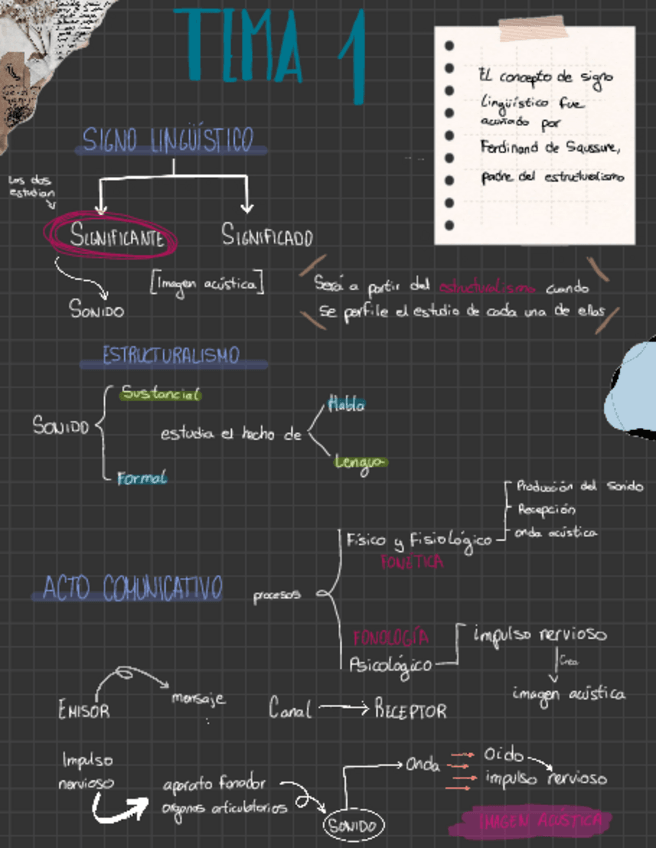 TEMA 1
EL concepto de signo
lingüístico fue
acuñado por
Ferdinand de Saussure,
padre del estructuralismo
SIGNO LINGÜÍSTICO
Los dos
estudian
SIGNIFICANTE
SIGNIFICADO
[Imagen acústica]
SONIDO
Será a partir del estructuralismo cuando
se perfile el estudio de cada una de ellas
ESTRUCTURALISMO
SONIDO
Sustancial
Formal
estudia el hecho de
Habla
Lengua
ACTO COMUNICATIVO
procesos
Físico y Fisiológico
FONÉTICA
Producción del sonido
Recepción
onda acústica
FONOLOGÍA
Psicológico
impulso nervioso
Crea
imagen acústica
EMISOR
mensaje
Canal
RECEPTOR
Impulso
nervioso
aparato fonador
órganos articulatorios
SONIDO
Onda
Oído
impulso nervioso
IMAGEN ACÚSTICA